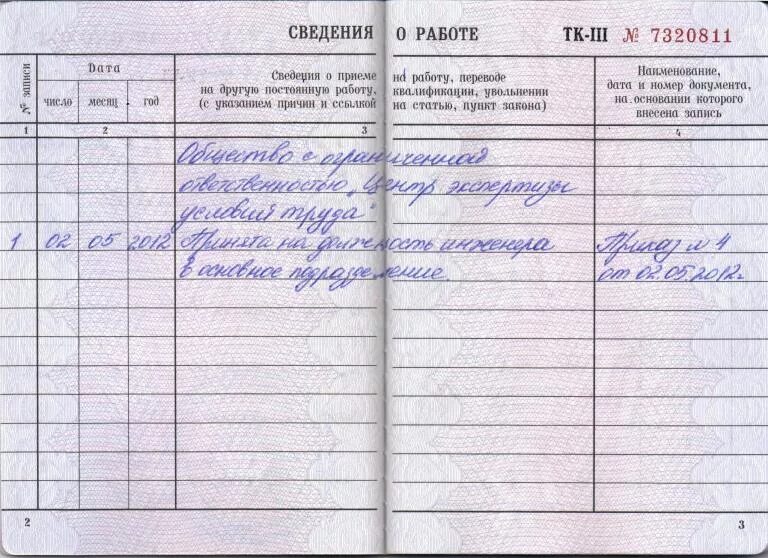 СВЕДЕНИЯ О РАБОТЕ ТК-III № 7320811
№ записи
Дата
число месяц год
Сведения о приеме на работу, переводе
на другую постоянную работу, квалификации, увольнении
(с указанием причин и ссылкой на статью, пункт закона)
Наименование,
дата и номер документа,
на основании которого
внесена запись
1 2 3 4
Общество с ограниченной
ответственностью „Центр экспертизы
условий труда"
1 02 05 2012 Принята на должность инженера Приказ № 4
в основное подразделение. от 02.05.2012г
2 3